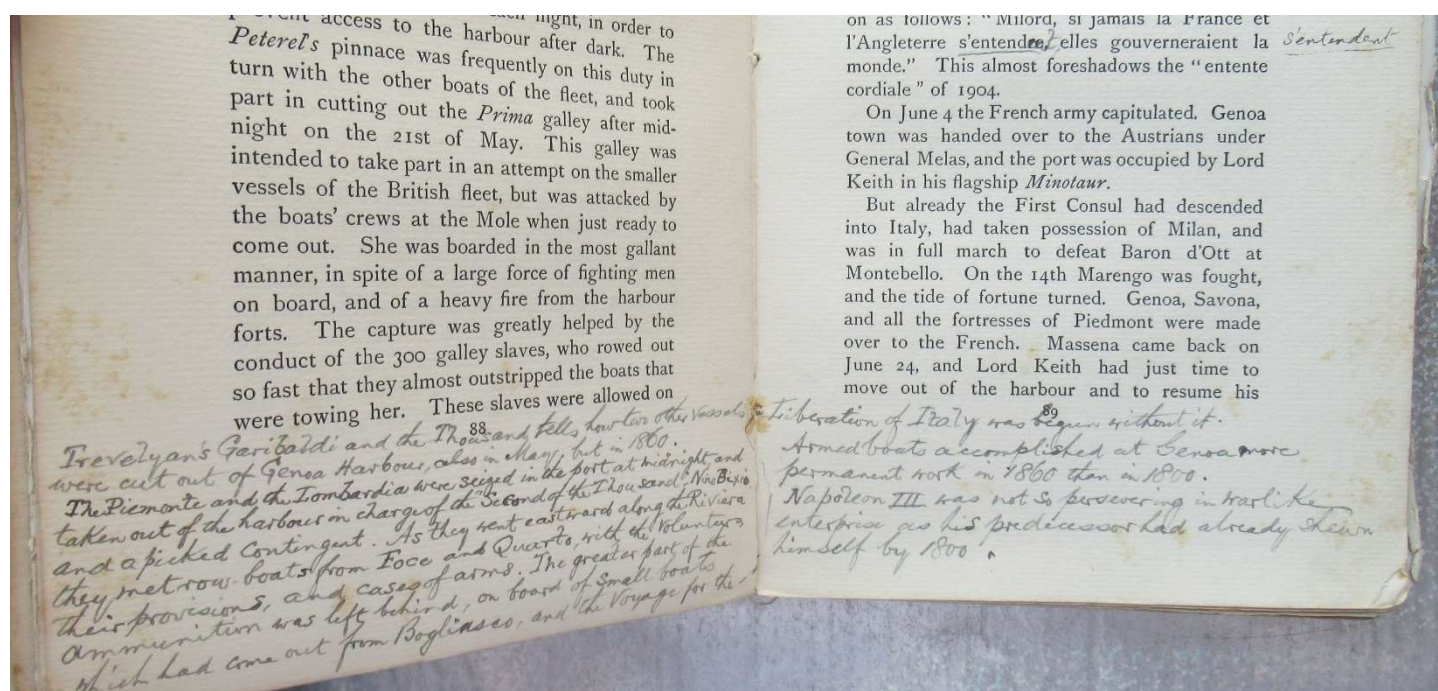 each night, in order to
prevent access to the harbour after dark. The
Peterel's pinnace was frequently on this duty in
turn with the other boats of the fleet, and took
part in cutting out the Prima galley after mid-
night on the 21st of May. This galley was
intended to take part in an attempt on the smaller
vessels of the British fleet, but was attacked by
the boats' crews at the Mole when just ready to
come out. She was boarded in the most gallant
manner, in spite of a large force of fighting men
on board, and of a heavy fire from the harbour
forts. The capture was greatly helped by the
conduct of the 300 galley slaves, who rowed out
so fast that they almost outstripped the boats that
were towing her. These slaves were allowed on
88
Trevelyan's Garibaldi and the Thousand, tells how two other vessels
were cut out of Genoa Harbour, also in May, but in 1860.
The Piemonte and the Lombardia were seized in the port at midnight, and
taken out of the harbour in charge of the "Second of the Thousand" Nino Bixio
and a picked contingent. As they went eastward along the Riviera
they met row-boats from Foce and Quarto, with the Volunteers
their provisions, and cases of arms. The greater part of the
ammunition was left behind, on board of small boats
which had come out from Bogliasco, and the voyage for the
on as follows: "Milord, si jamais la France et
l'Angleterre s'entendre, elles gouverneraient la
s'entendent
monde." This almost foreshadows the "entente
cordiale" of 1904.
On June 4 the French army capitulated. Genoa
town was handed over to the Austrians under
General Melas, and the port was occupied by Lord
Keith in his flagship Minotaur.
But already the First Consul had descended
into Italy, had taken possession of Milan, and
was in full march to defeat Baron d'Ott at
Montebello. On the 14th Marengo was fought,
and the tide of fortune turned. Genoa, Savona,
and all the fortresses of Piedmont were made
over to the French. Massena came back on
June 24, and Lord Keith had just time to
move out of the harbour and to resume his
89
Liberation of Italy was begun without it.
Armed boats accomplished at Genoa more
permanent work in 1860 than in 1800.
Napoleon III was not so persevering in warlike
enterprise as his predecessor had already shewn
himself by 1800.